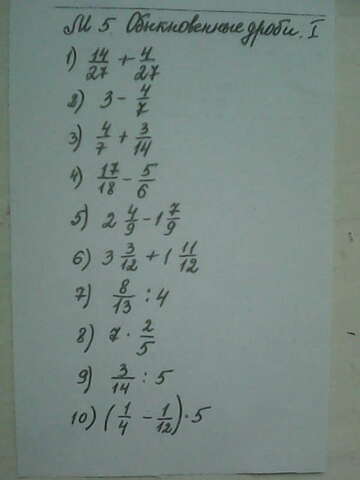 М 5 Обыкновенные дроби. I
1) 14/27 + 4/27
2) 3 - 4/7
3) 4/7 + 3/14
4) 17/18 - 5/6
5) 2 4/9 - 1 7/9
6) 3 3/12 + 1 11/12
7) 8/13 : 4
8) 7 · 2/5
9) 3/14 : 5
10) (1/4 - 1/12) · 5